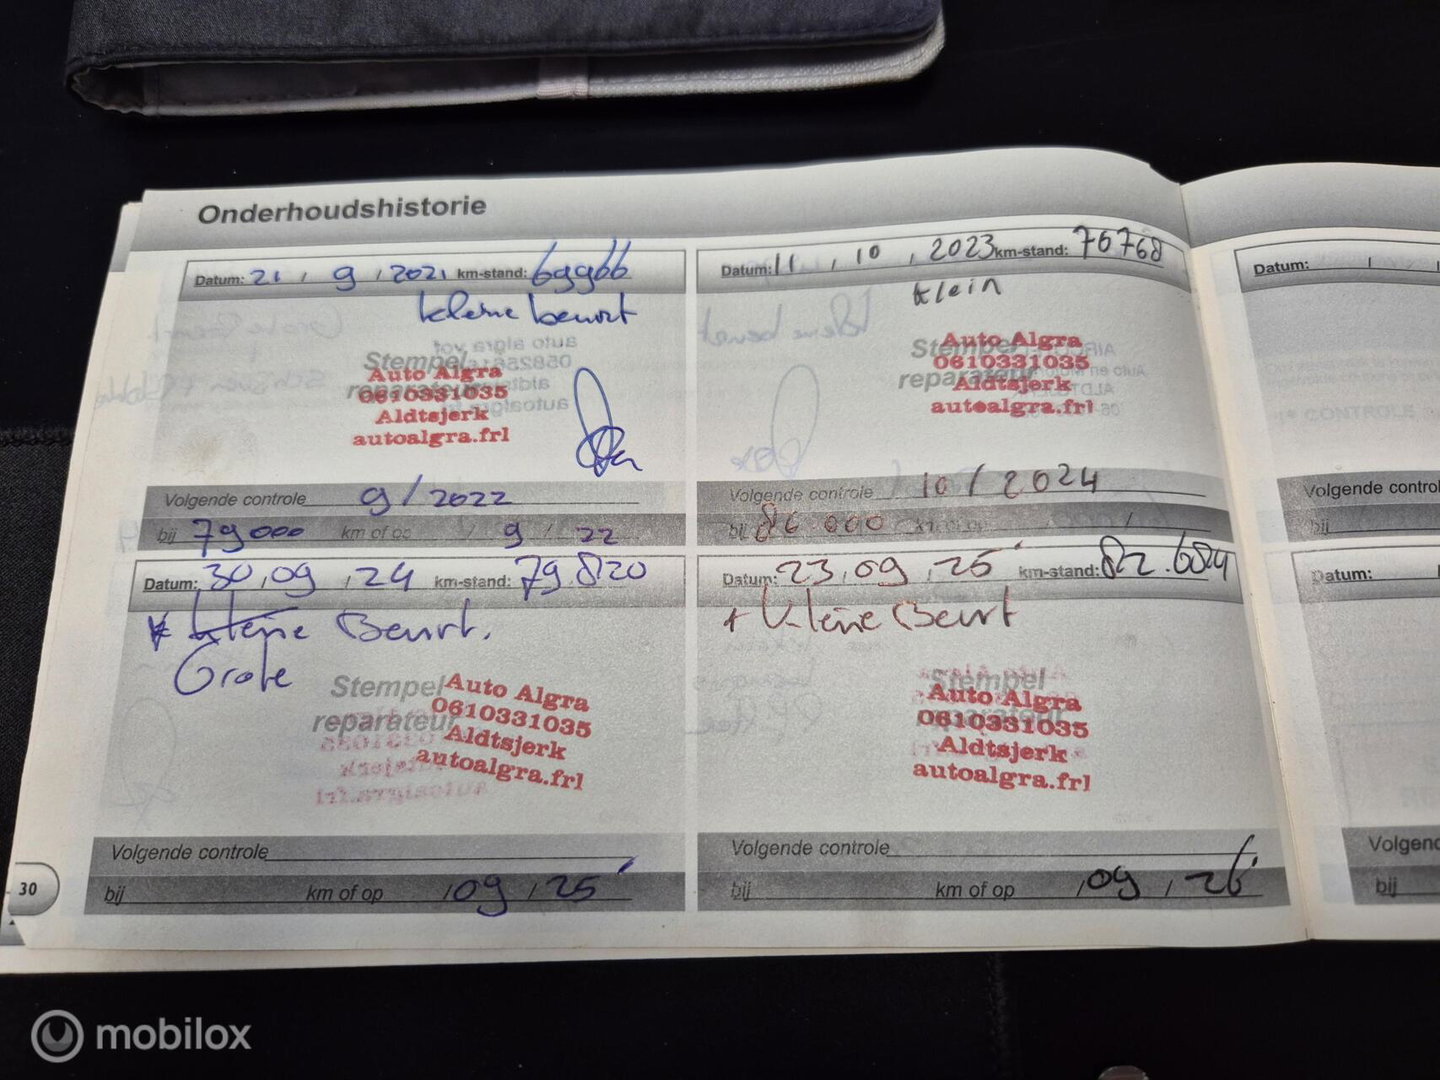 Onderhoudshistorie
Datum: 21 / 9 / 2021 km-stand: 69966
kleine beurt
Stempel
reparateur
Auto Algra
0610331035
Aldtsjerk
autoalgra.frl
Volgende controle 9 / 2022
bij 79000 km of op / 9 / 22
Datum: 11 , 10 , 2023 km-stand: 76768
klein
Stempel
reparateur
Auto Algra
0610331035
Aldtsjerk
autoalgra.frl
Volgende controle 10 / 2024
bij 86 000 km of op / /
Datum: 30 , 09 , 24 km-stand: 79.820
Kleine Beurt.
Grote
Stempel
reparateur
Auto Algra
0610331035
Aldtsjerk
autoalgra.frl
Volgende controle
bij km of op / 09 / 25
Datum: 23 , 09 , 25 km-stand: 82.684
+ Kleine Beurt
Stempel
reparateur
Auto Algra
0610331035
Aldtsjerk
autoalgra.frl
Volgende controle
bij km of op / 09 / 26
30
Datum: / /
Volgende control
bij
Datum:
Volgend
bij
mobilox